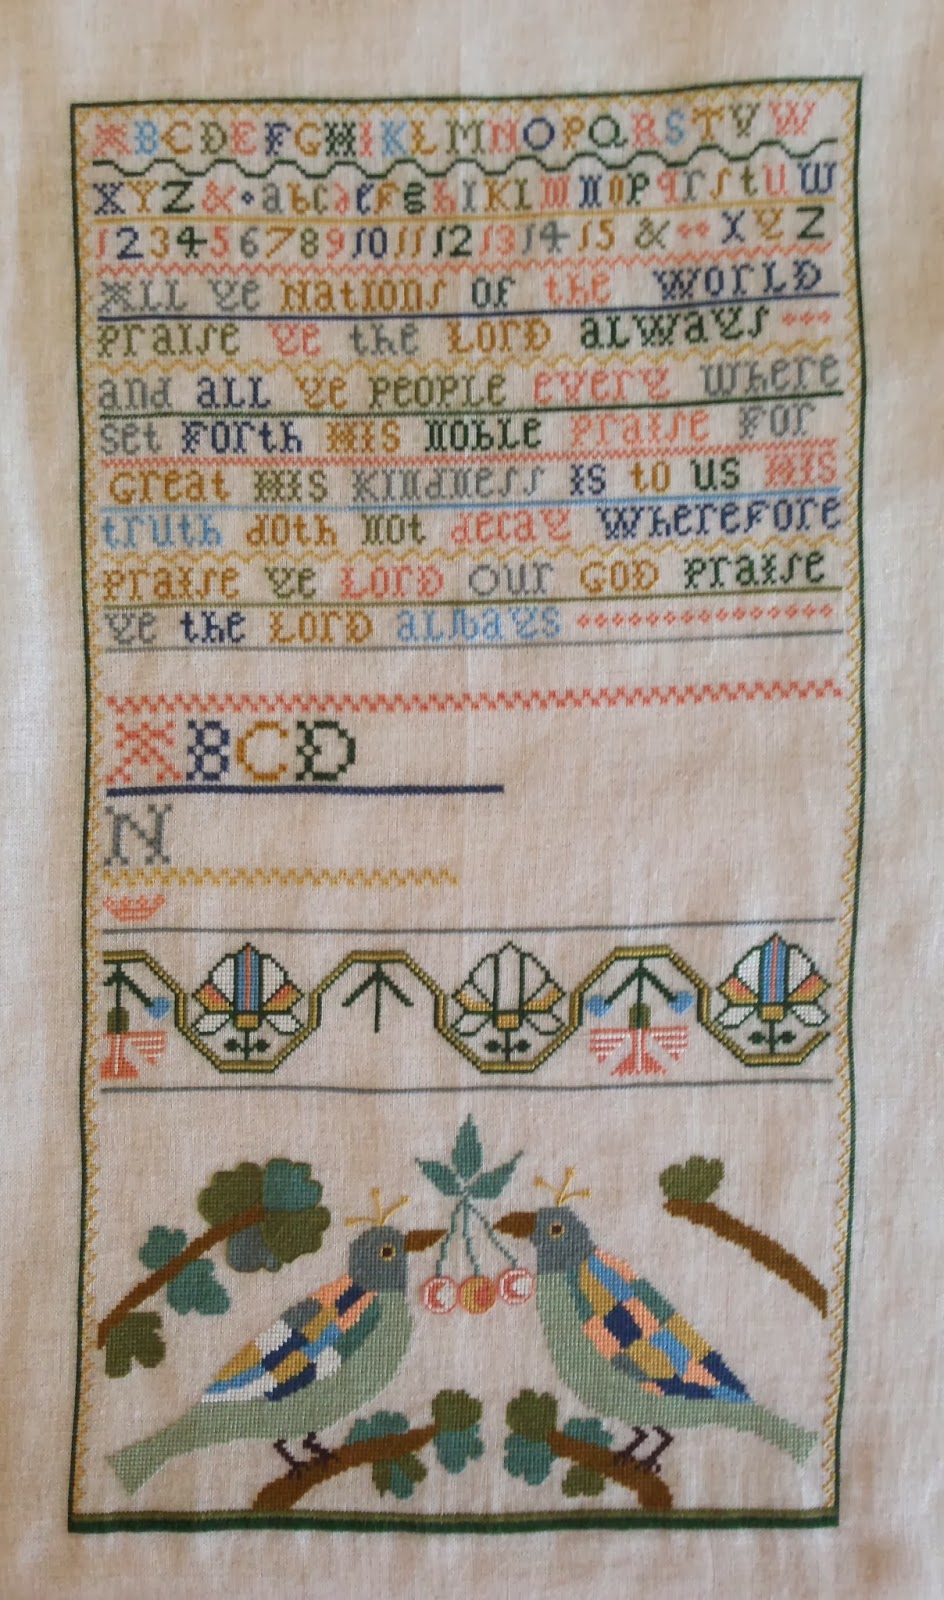 A B C D E F G H I K L M N O P Q R S T V W
X Y Z & a b c d e f g h I K L M N O P q r s t u w
1 2 3 4 5 6 7 8 9 10 11 12 13 14 15 & X Y Z
All ye Nations of the World
Praise ye the Lord always
and all ye People every where
set forth His Noble Praise for
Great His Kindness is to us His
truth doth not decay Wherefore
Praise ye Lord our God Praise
ye the Lord always
A B C D
N